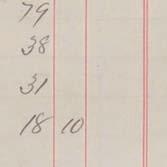 79
38
31
18 10